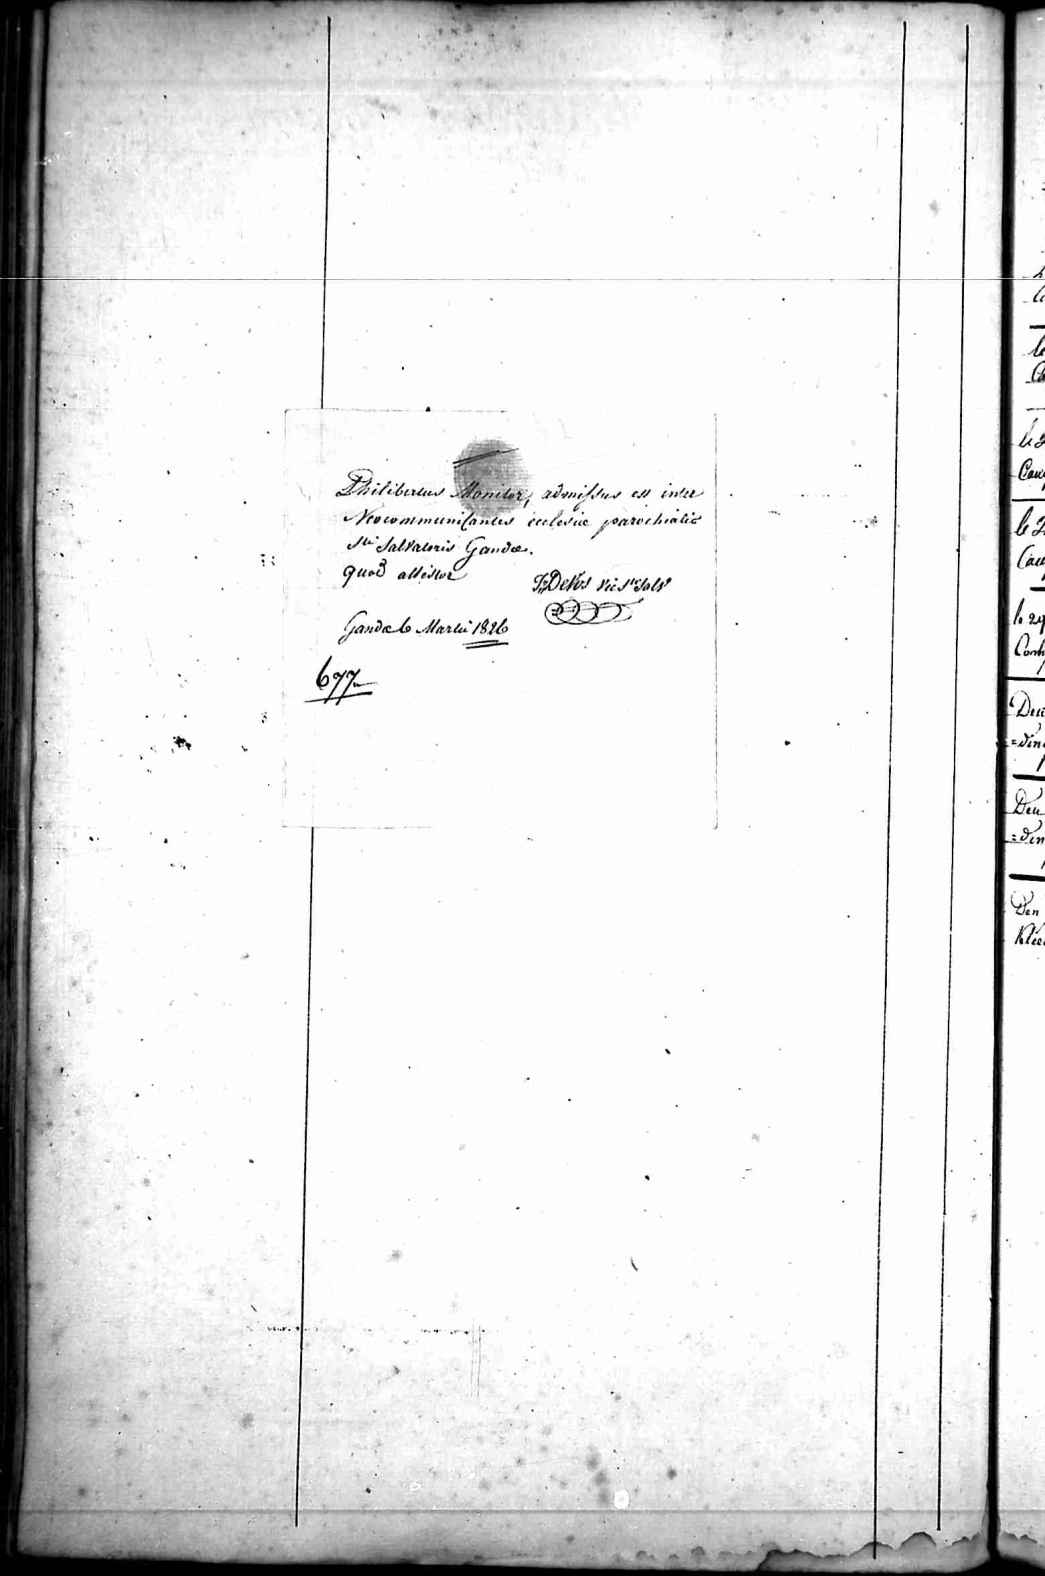 Philibertus Monitor, admissus est inter
Neocommunicantes ecclesiae parochialis
Sti Salvatoris Gandae.
quod attestor
F. DeVos vic Sti Salvs
Gandae 6 Martii 1826
677
le 2
le 29
Den